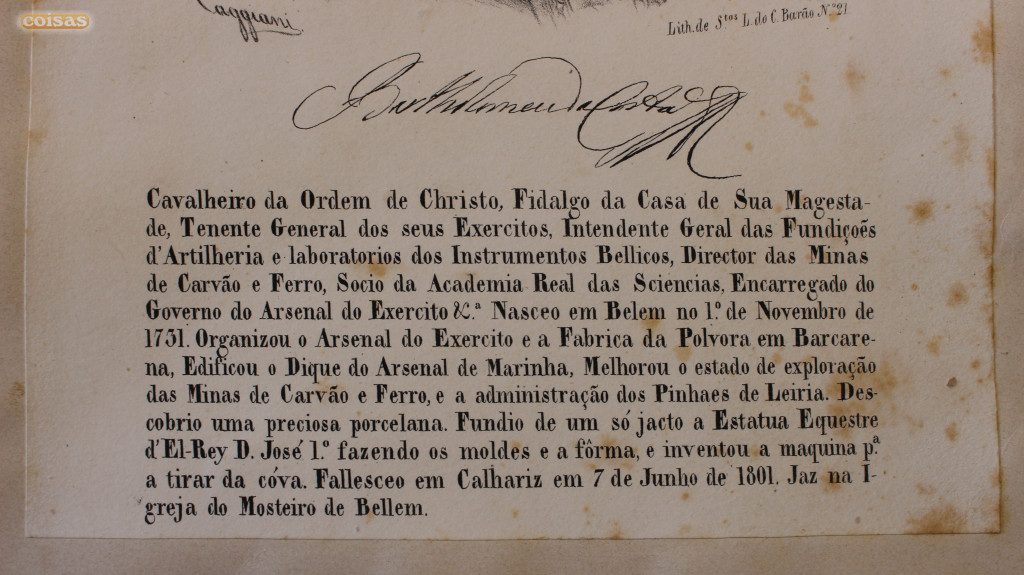 coisas
Caggiani
Lith. de S.tos L. do C. Barão N.º 21
Bartholomeu da Costa
Cavalheiro da Ordem de Christo, Fidalgo da Casa de Sua Magesta-
de, Tenente General dos seus Exercitos, Intendente Geral das Fundiçoẽs
d'Artilheria e laboratorios dos Instrumentos Bellicos, Director das Minas
de Carvão e Ferro, Socio da Academia Real das Sciencias, Encarregado do
Governo do Arsenal do Exercito &.ª Nasceo em Belem no 1.º de Novembro de
1731. Organizou o Arsenal do Exercito e a Fabrica da Polvora em Barcare-
na, Edificou o Dique do Arsenal de Marinha, Melhorou o estado de exploração
das Minas de Carvão e Ferro, e a administração dos Pinhaes de Leiria. Des-
cobrio uma preciosa porcelana. Fundio de um só jacto a Estatua Equestre
d'El-Rey D. José 1.º fazendo os moldes e a fôrma, e inventou a maquina p.ª
a tirar da cóva. Fallesceo em Calhariz em 7 de Junho de 1801. Jaz na I-
greja do Mosteiro de Bellem.